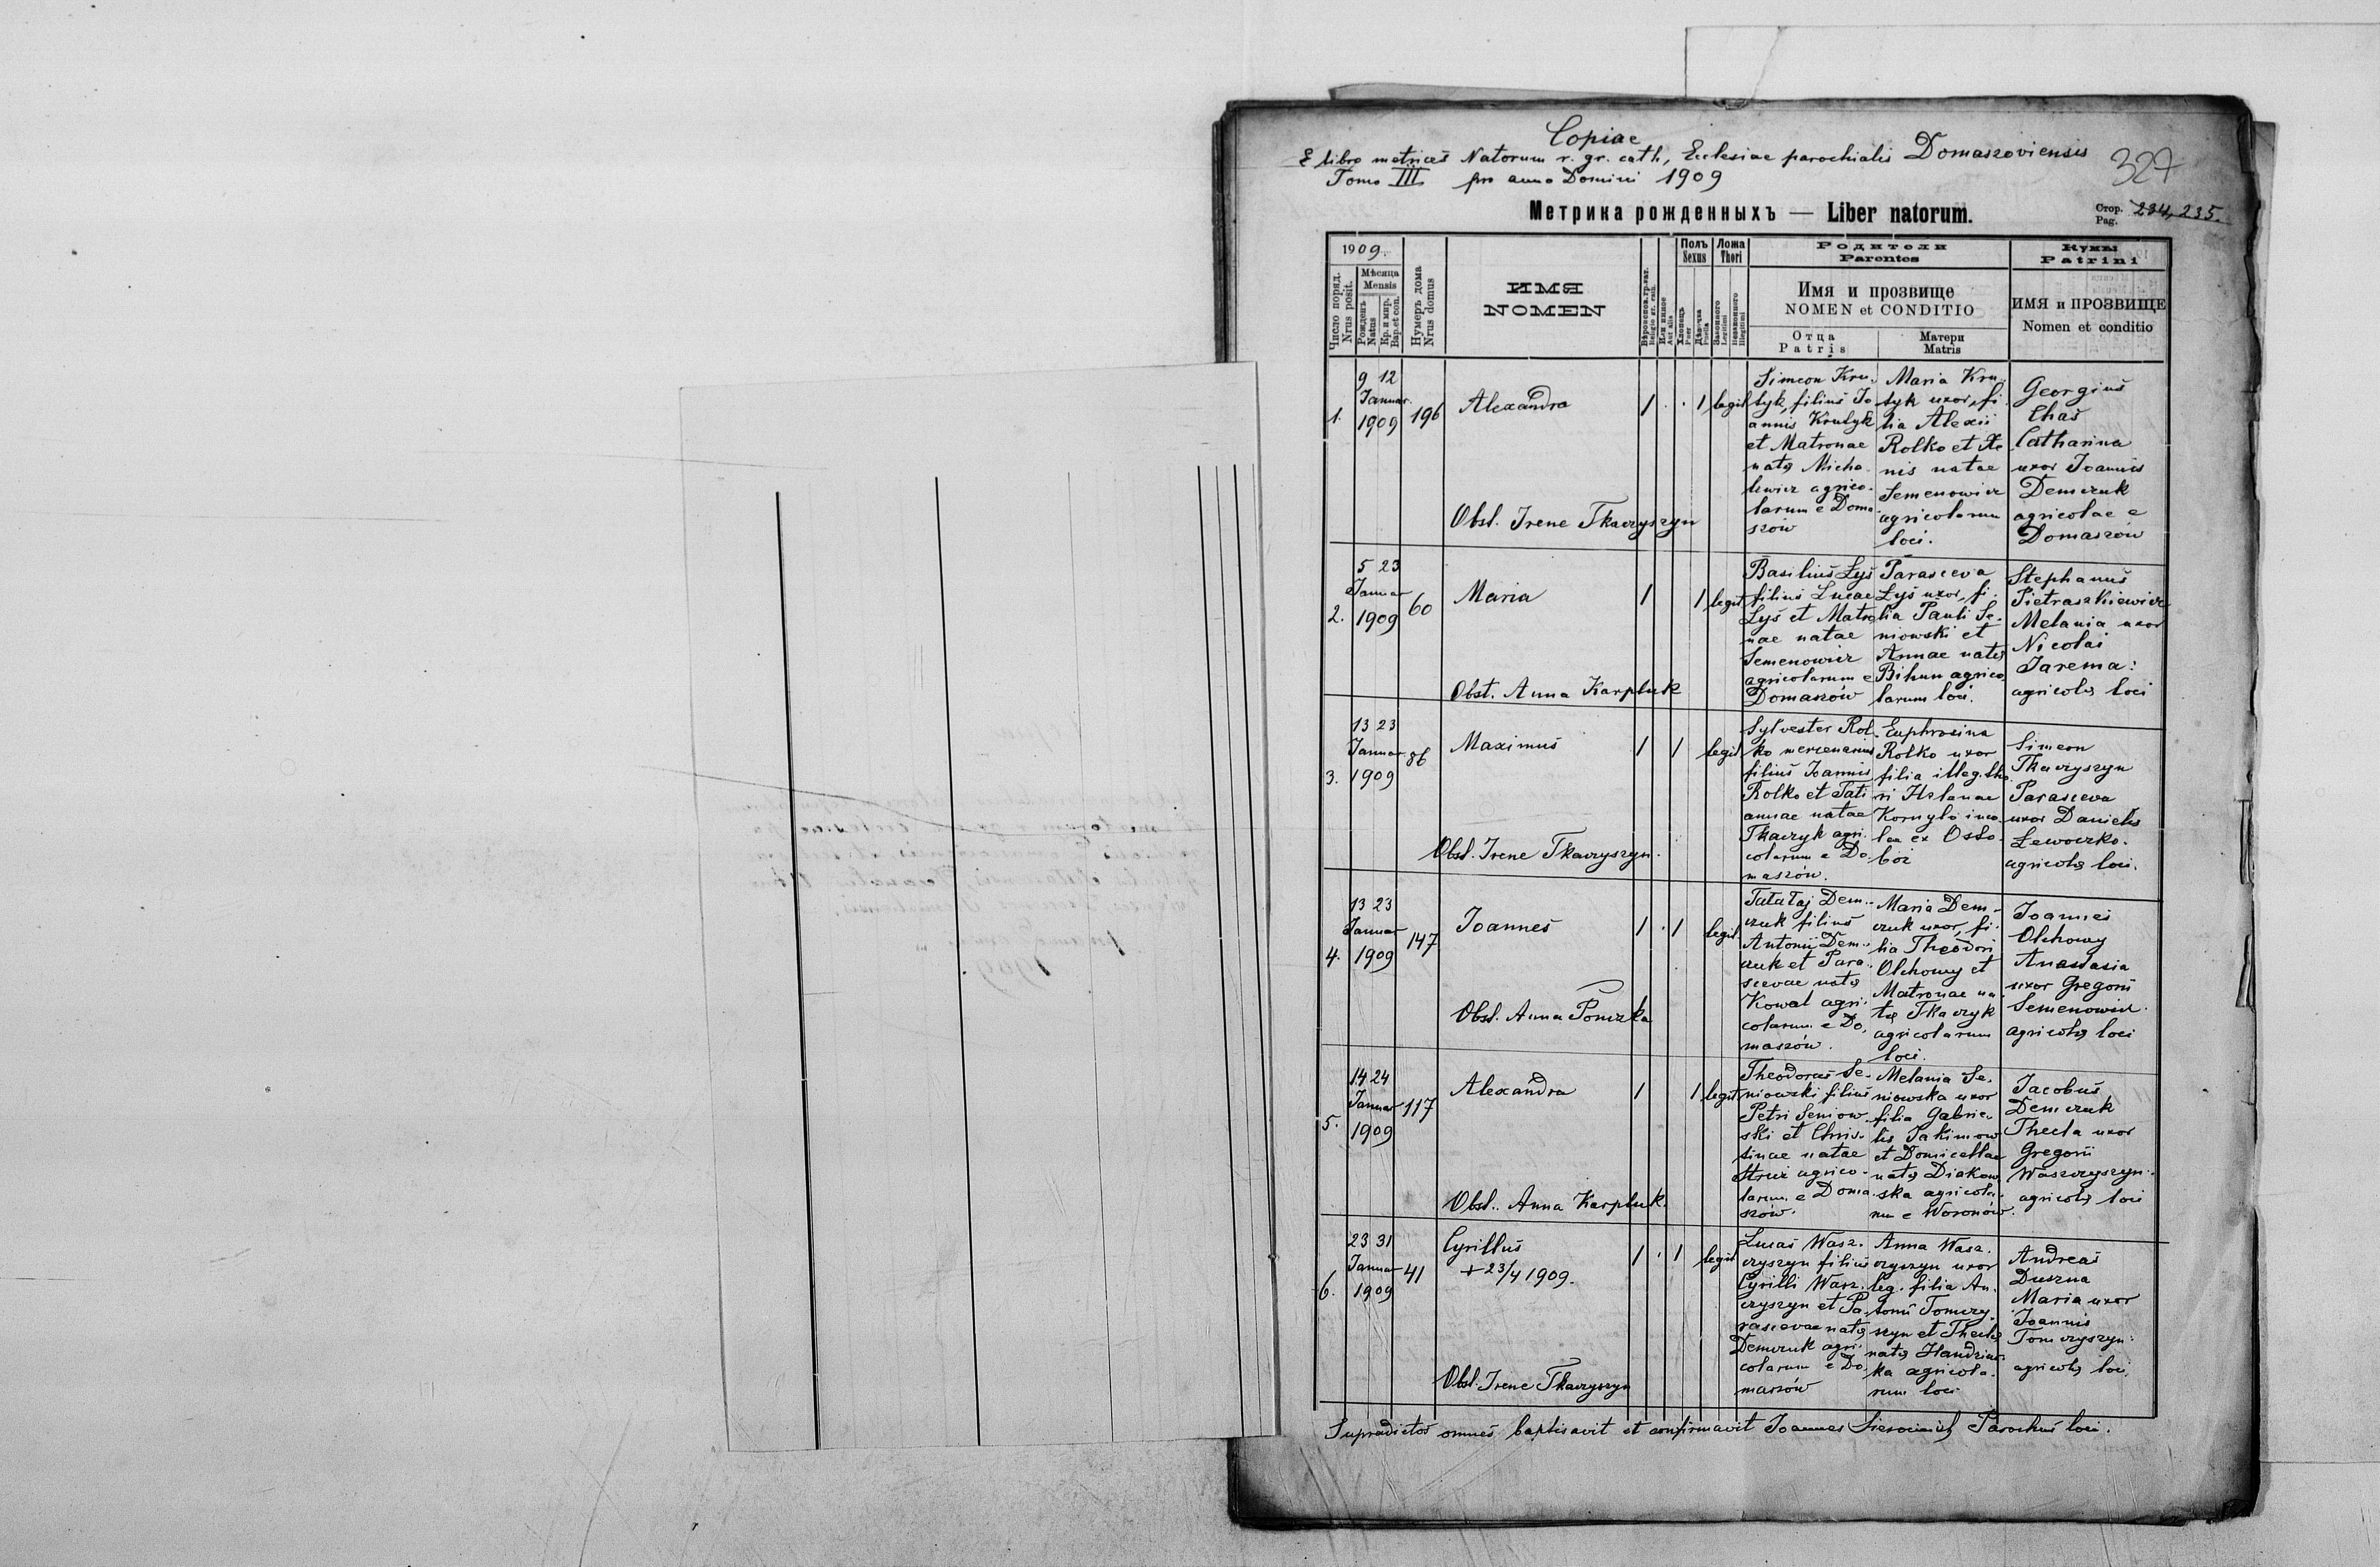 Copiae
E libro metrices Natorum r. gr. cath. Ecclesiae parochialis Domaszoviensis
Tomo III pro anno Domini 1909
327
Метрика рожденныхъ — Liber natorum.
Стор. Pag. 234, 235.
1909.
Число поряд. Nrus posit.
Мѣсяца Mensis
Рожденъ Natus
Кр. и мир. Bap. et con.
Нумеръ дома Nrus domus
ИМЯ
NOMEN
Полъ Sexus
Хлопецъ Puer
Ложа Thori
Законного Legitimi
Незаконного Illegitimi
Родители
Parentes
Имя и прозвище
NOMEN et CONDITIO
Отца
Patris
Матери
Matris
Кумы
Patrini
ИМЯ и ПРОЗВИЩЕ
Nomen et conditio
1.
9 12
Januar.
1909
196
Alexandra
1 . . 1 legit
Obst. Irene Tkaczyszyn
Simeon Kru-
tyk, filius Jo
annis Krutyk
et Matronae
natę Micha-
lewicz agrico-
larum e Doma
szów
Maria Kru
tyk uxor, fi
lia Alexii
Rolko et Xe
nis natae
Semenowicz
agricolarum
loci.
Georgius
Chaś
Catharina
uxor Joannis
Demczuk
agricolae e
Domaszów
2.
5 23
Januar
1909
60
Maria
1 1 legit
Obst. Anna Karpluk
Basilius Łyś
filius Lucae
Łyś et Matro
nae natae
Semenowicz
agricolarum e
Domaszów
Parasceva
Łyś uxor, fi-
lia Pauli Se-
niowski et
Annae natę
Bihun agrico
larum loci.
Stephanus
Pietraszkiewicz
Melania uxor
Nicolai
Jarema:
agricolę loci
3.
13 23
Januar
1909
86
Maximus
1 1 legit
Obst. Irene Tkaczyszyn.
Sylvester Rol-
ko mercenarius
filius Joannis
Rolko et Tati
annae natae
Tkaczyk agri-
colarum e Do
maszów.
Euphrosina
Rolko uxor
filia illeg. tho
ri Helenae
Kornyło inco
lae ex Osło-
Simeon
Tkaczyszyn
Parasceva
uxor Danielis
Lewoczko.
agricolę loci.
4.
13 23
Januar
1909
147
Joannes
1 . 1 legit
Obst. Anna Pomzka
Dem-
czuk filius
Antonii Dem-
czuk et Para-
scevae natę
Kowal agri-
colarum e Do,
maszów.
Maria Dem-
czuk uxor, fi-
lia Theodori
Olchowy et
Matronae na
tę Tkaczyk
agricolarum
loci.
Joannes
Olchowy
Anastasia
uxor Gregorii
Semenowicz.
agricolę loci
5.
14 24
Januar
1909
117
Alexandra
1 1 legit
Obst. Anna Karpluk.
Theodorus Se-
niowski filius
Petri Seniow-
ski et Chris-
tinae natae
agrico-
larum e Doma
szów.
Melania Se-
niowska uxor
filia Gabrie-
lis Jakimow
et Domicellae
natę Diakow
ska agricola-
rum e Woronów.
Jacobus
Demczuk
Thecla uxor
Gregorii
Waszczyszyn.
agricolę loci
6.
23 31
Januar
1909
41
Cyrillus
+ 23/4 1909.
1 . 1 legit
Obst. Irene Tkaczyszyn
Lucas Wasz-
czyszyn filius
Cyrilli Wasz-
czyszyn et Pa
rascevae natę
Demczuk agri-
colarum e Do,
maszów
Anna Wasz-
czyszyn uxor
leg. filia An-
tonii Tomczy-
szyn et Theclę
natę
ka agricola-
rum loci
Andreas
Duszna
Maria uxor
Joannis
Tomczyszyn:
agricolę loci,
Supradictos omnes baptisavit et confirmavit Joannes Parochus loci.